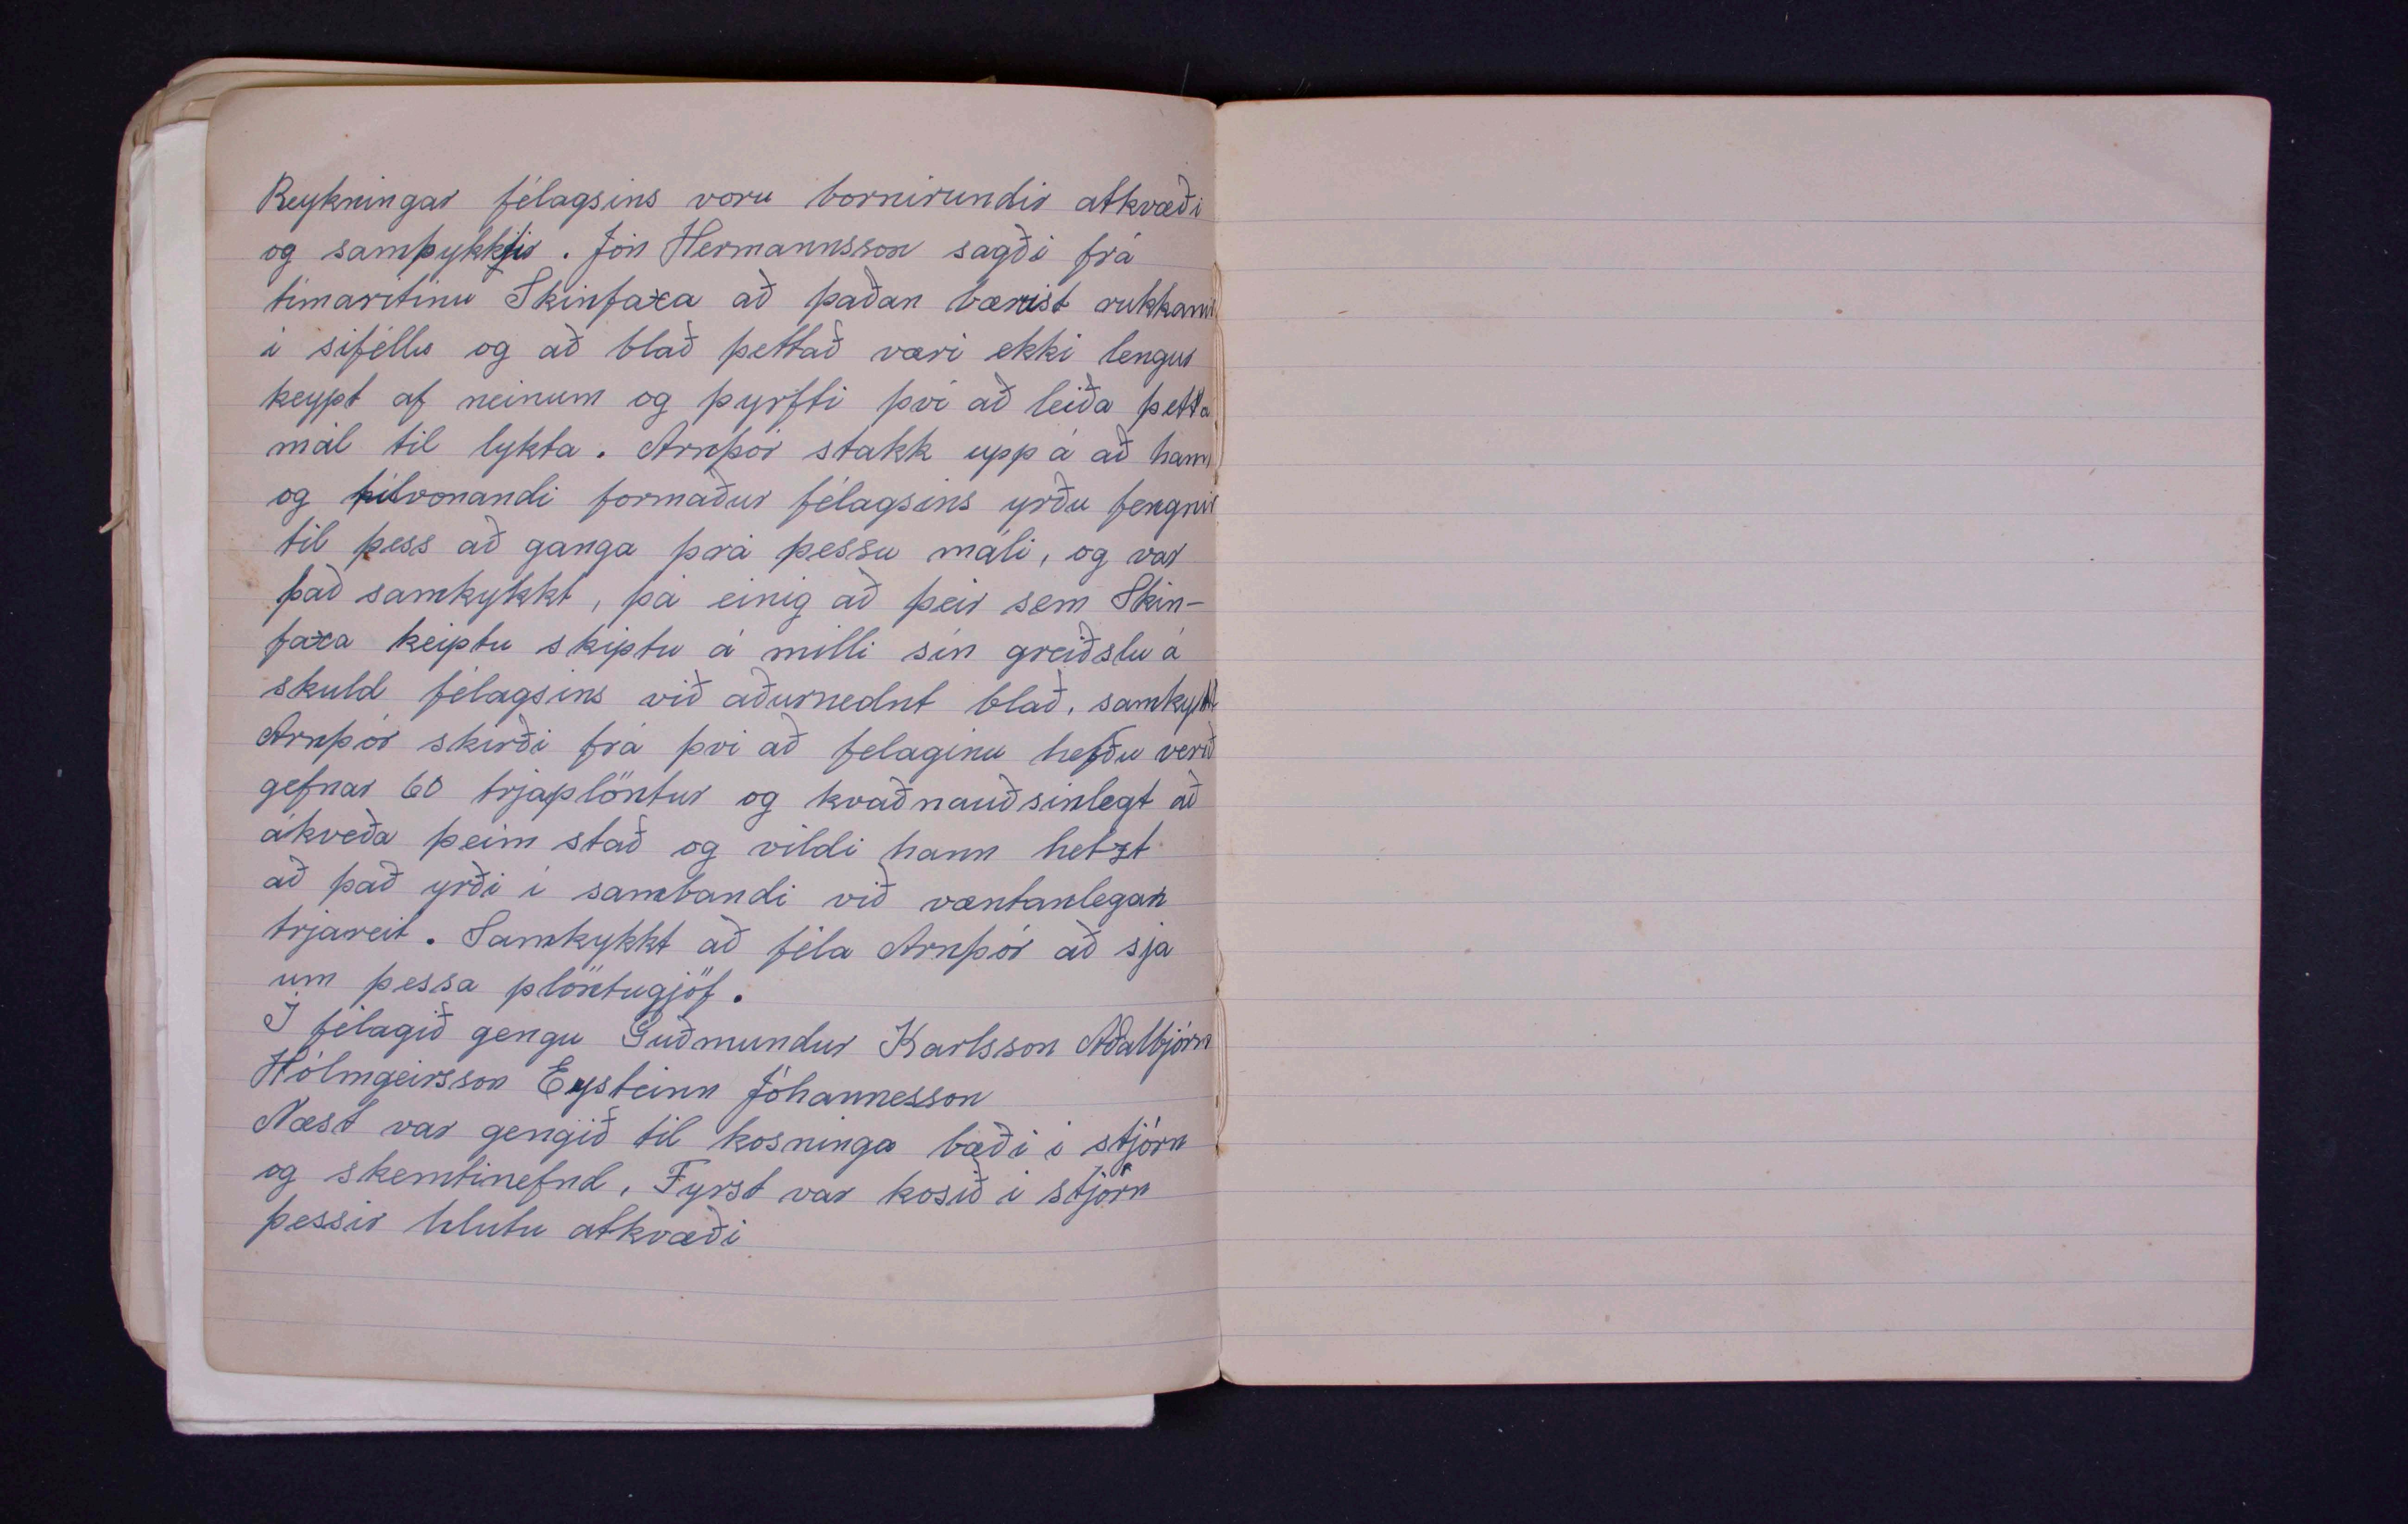 Reykningar félagsins voru bornirundir atkvæði
og samþykktir. Jón Hermannsson sagði frá
tímaritinu Skinfaxa að þaðan bærist rukkanir
í sífellu og að blað þettað væri ekki lengur
keypt af neinum og þyrfti því að leiða þetta
mál til lykta. Arnþór stakk uppá að hann
og tilvonandi formaður félagsins yrðu fengnir
til þess að ganga þrá þessu máli, og var
það samkykkt, þá einig að þeir sem Skin-
faxa keiptu skiptu á milli sín greiðslu á
skuld félagsins við aðurnednt blað, samkykkt
Arnþór skirði frá því að felaginu hefðu verið
gefnar 60 trjáplöntur og kvaðnauðsinlegt að
ákveða þeim stað og vildi hann helzt
að það yrði í sambandi við væntanlegan
trjáreit. Samkykkt að féla Arnþór að sjá
um þessa plöntugjöf.
Í félagið gengu Guðmundur Karlsson Aðalbjörn
Hólmgeirsson Eysteinn Jóhannesson
Næst var gengið til kosninga bæði í stjórn
og skemtinefnd, Fyrst var kosið í stjórn
þessir hlutu atkvæði